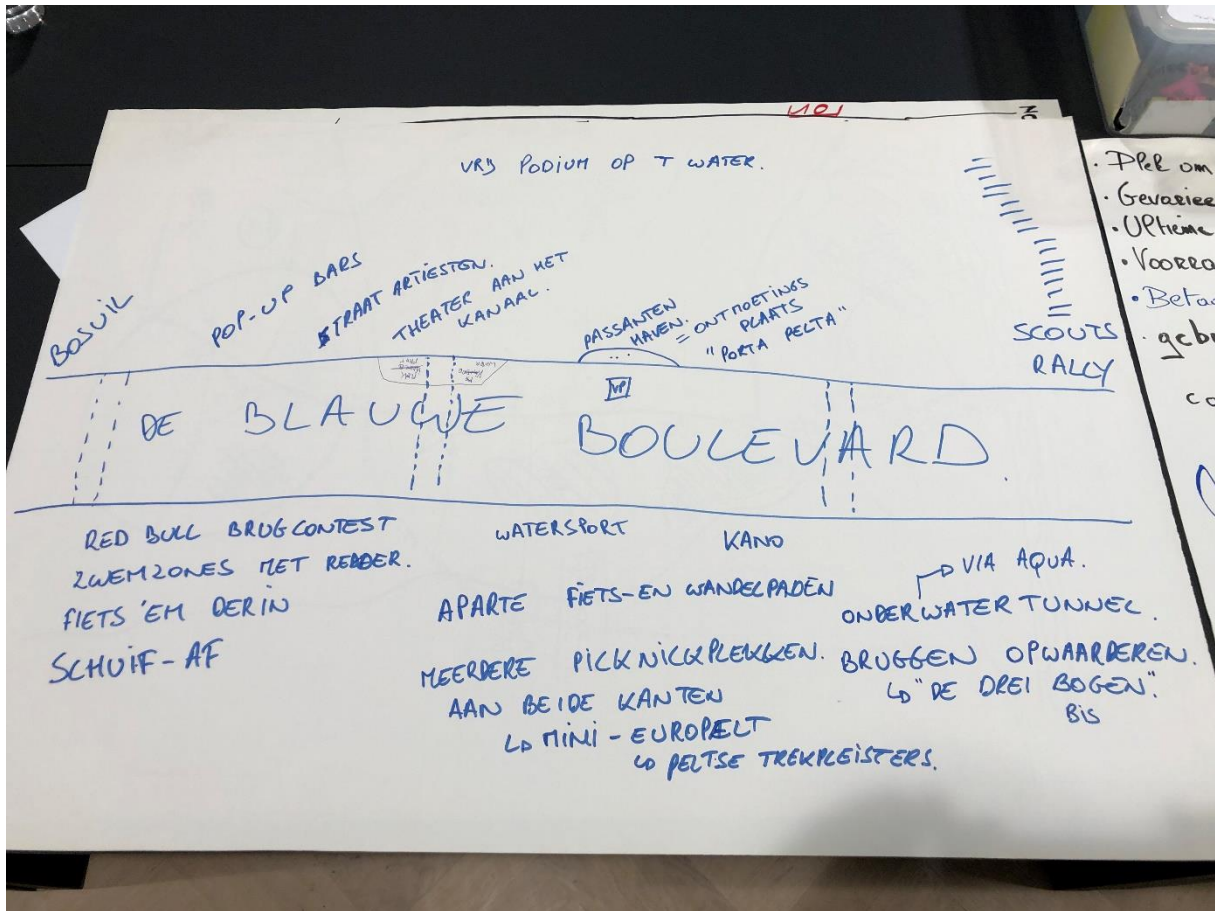 VRIJ PODIUM OP T WATER.
BOSUIL
POP-UP BARS
STRAAT ARTIESTEN.
THEATER AAN HET
KANAAL.
PASSANTEN
HAVEN.
= ONTMOETINGS
PLAATS
"PORTA PELTA"
SCOUTS
RALLY
VP
DE BLAUWE BOULEVARD
RED BULL BRUGCONTEST
ZWEMZONES MET REDDER.
FIETS 'EM DERIN
SCHUIF-AF
WATERSPORT
KANO
APARTE FIETS-EN WANDELPADEN
MEERDERE PICKNICKPLEKKEN.
AAN BEIDE KANTEN
↳ MINI-EUROPELT
↳ PELTSE TREKPLEISTERS.
VIA AQUA.
ONDERWATERTUNNEL.
BRUGGEN OPWAARDEREN.
↳ "DE DREI BOGEN".
BIS
· Plek om
· Gevariee
· Ultieme
· Voorra
· Beta
· gebr
co